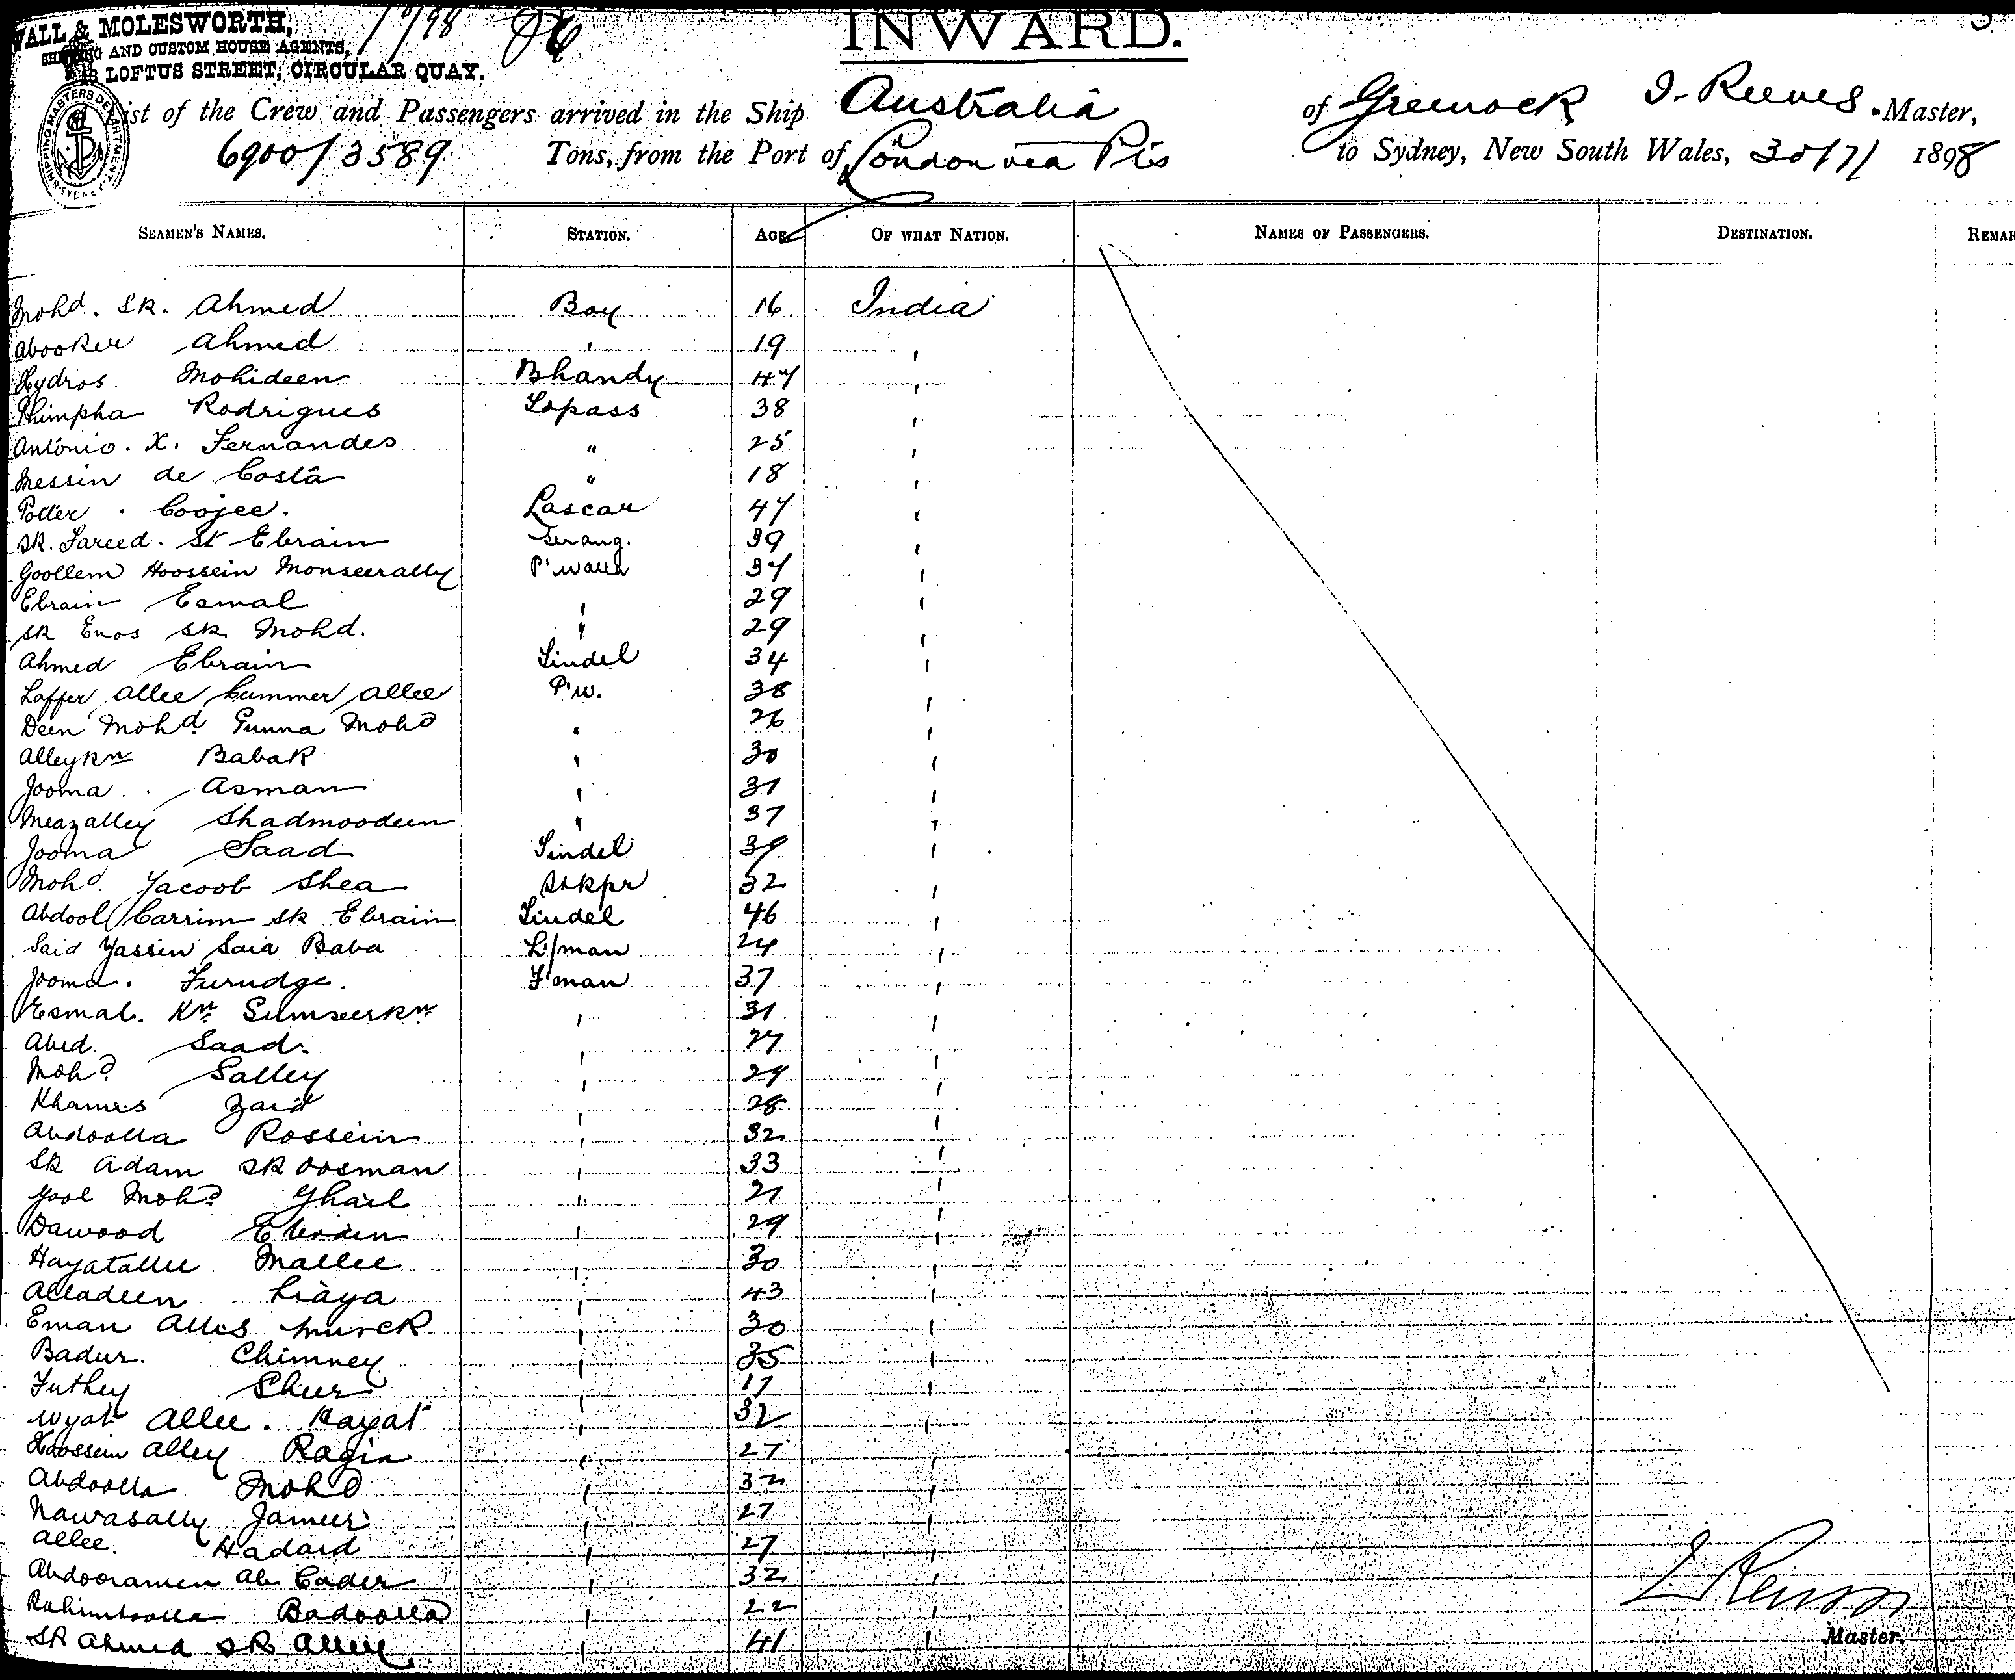 WALL & MOLESWORTH, 1898 86
INWARD.
SHIPPING AND CUSTOM HOUSE AGENTS,
LOFTUS STREET, CIRCULAR QUAY.
List of the Crew and Passengers arrived in the Ship Australia of Greenock Reeves. Master,
6900/3589 Tons, from the Port of London via Pts to Sydney, New South Wales, 30/7/ 1898
SEAMEN'S NAMES. STATION. AGE OF WHAT NATION. NAMES OF PASSENGERS. DESTINATION. REMAR
Mohd. Sk. Ahmed Boy 16 India
Abooker Ahmed " 19 "
Hydros Mohideen Bhandy 47 "
Rodrigues Topass 38 "
Antonio. X. Fernandes " 25 "
Messin de Costa " 18 "
Coojee. Lascar 47 "
Sk. Fareed. Sk Ebraim Serang. 39 "
Goollem Hoossein Monseerally P'walla 37 "
Ebraim Esmal " 29 "
Sk Enos Sk Mohd. " 29 "
Ahmed Ebraim Tindel 34 "
Allee Cummer Allee P'w. 38 "
Deen Mohd. Gunna Mohd " 26 "
Alleykn Babak " 30 "
Jooma Asman " 31 "
Meazalley Shadmoodeen " 37 "
Jooma Saad Tindel 39 "
Mohd. Yacoob Shea Stkpr 32 "
Abdool Carrim Sk Ebraim Tindel 46 "
Said Yassin Said Baba L/man 24 "
Jooma. Furudge. F'man 37 "
Esmal. Kn. Sumseerkn " 31 "
Abed. Saad. " 27 "
Mohd. Salley " 29 "
Khamis Zaid " 28 "
Abdoolla Rossein " 32 "
Sk Adam Sk Oosman " 33 "
Gool Mohd. Ghail " 21 "
Dawood Ebraim " 29 "
Hayatallee Mallee " 30 "
Alladeen " 43 "
Eman Murck " 30 "
Badur. Chimney " 35 "
Futhey Sheer " 17 "
Wyat Allee. Hayat " 32 "
Hoossein Alley Ragia " 27 "
Abdoolla Mohd " 32 "
Nawasally Jameer " 27 "
Allee. Hadard " 27 "
Abdooramen Ab. Cader " 32 "
Rahimtoolla Badoolla " 22 "
Sk Ahmed Sk Alley " 41 "
Master.